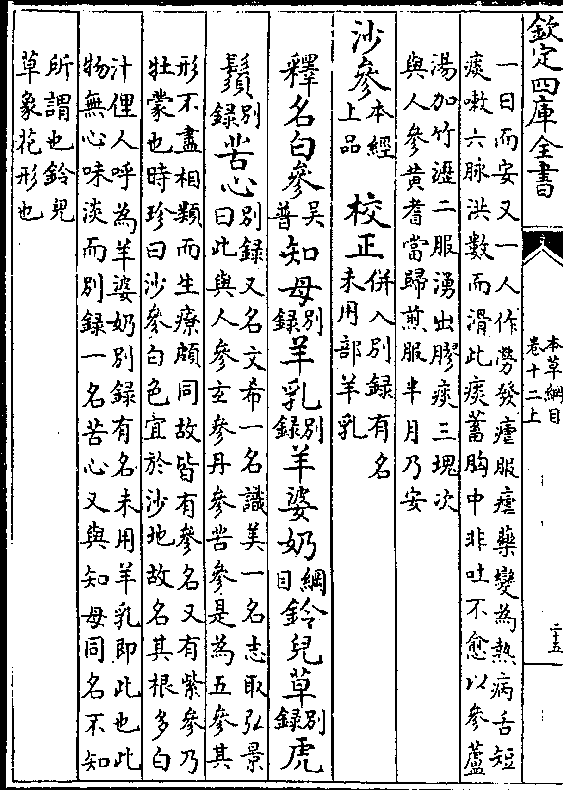 欽定四庫全書
本草綱目
卷十二上
二十五
一日而安又一人作勞發瘧服瘧藥變為熱病舌短
痰嗽六脉洪數而滑此痰蓄胸中非吐不愈以參蘆
湯加竹瀝二服湧出膠痰三塊次
與人參黃耆當歸煎服半月乃安
沙參本經上品 校正併入別錄有名未用部羊乳
釋名白參吳普知母別録羊乳別録羊婆奶綱目鈴兒草別録虎
鬚別録苦心別録又名文希一名識美一名志取弘景
曰此與人參玄參丹參苦參是為五參其
形不盡相類而生療頗同故皆有參名又有紫參乃
牡蒙也時珍曰沙參白色宜於沙地故名其根多白
汁俚人呼為羊婆奶別録有名未用羊乳即此也此
物無心味淡而別録一名苦心又與知母同名不知
所謂也鈴兒
草象花形也